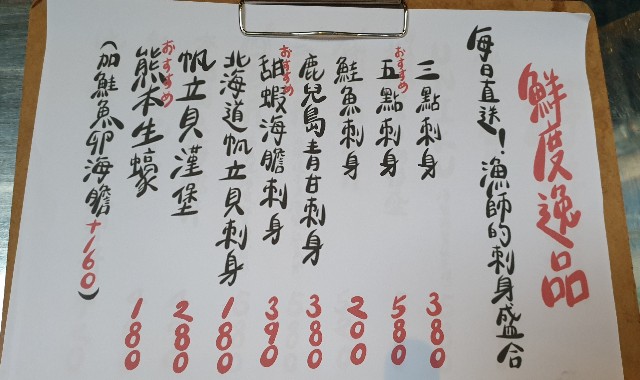 鮮度逸品
每日直送！漁師的刺身盛合
三點刺身 380
おすすめ
五點刺身 580
鮭魚刺身 200
鹿兒島青甘刺身 380
おすすめ
甜蝦海膽刺身 390
北海道帆立貝刺身 180
帆立貝漢堡 280
おすすめ
熊本生蠔 180
(加鮭魚卵海膽+160)